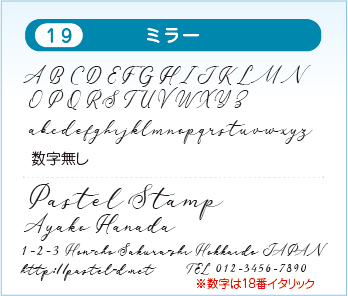 19 ミラー
A B C D E F G H I J K L M N
O P Q R S T U V W X Y Z
abcdefghijklmnopqrstuvwxyz
数字無し
Pastel Stamp
Ayako Hanada
1-2-3 Honcho Sakura-shi Hokkaido JAPAN
http://pastel-d.net TEL 012-3456-7890
※数字は18番イタリック